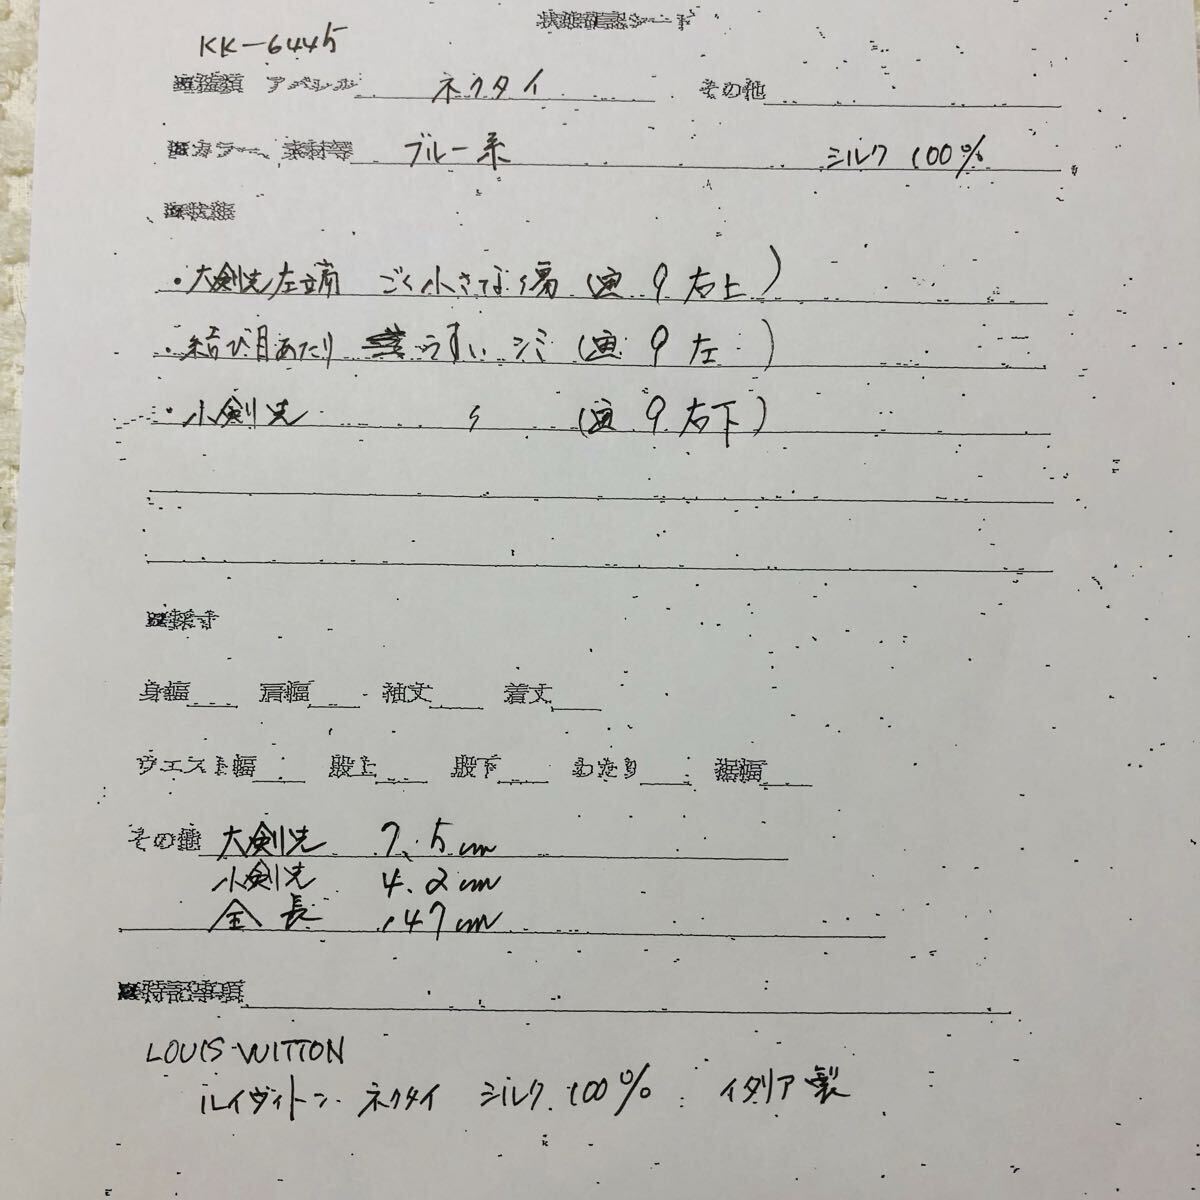 状態確認シート
KK-6445
■種類 アパレル ネクタイ その他
■カラー、素材等 ブルー系 シルク 100%
■状態
・大剣先左端 ごく小さな傷 (画 9 右上)
・結び目あたり うすい シミ (画 9 左 )
・小剣先 〃 (画 9 右下)
■採寸
身幅 肩幅 袖丈 着丈
ウエスト幅 股上 股下 わたり 裾幅
その他 大剣先 7.5cm
小剣先 4.2cm
全長 147cm
■特記事項
LOUIS VUITTON
ルイヴィトン ネクタイ シルク 100% イタリア製